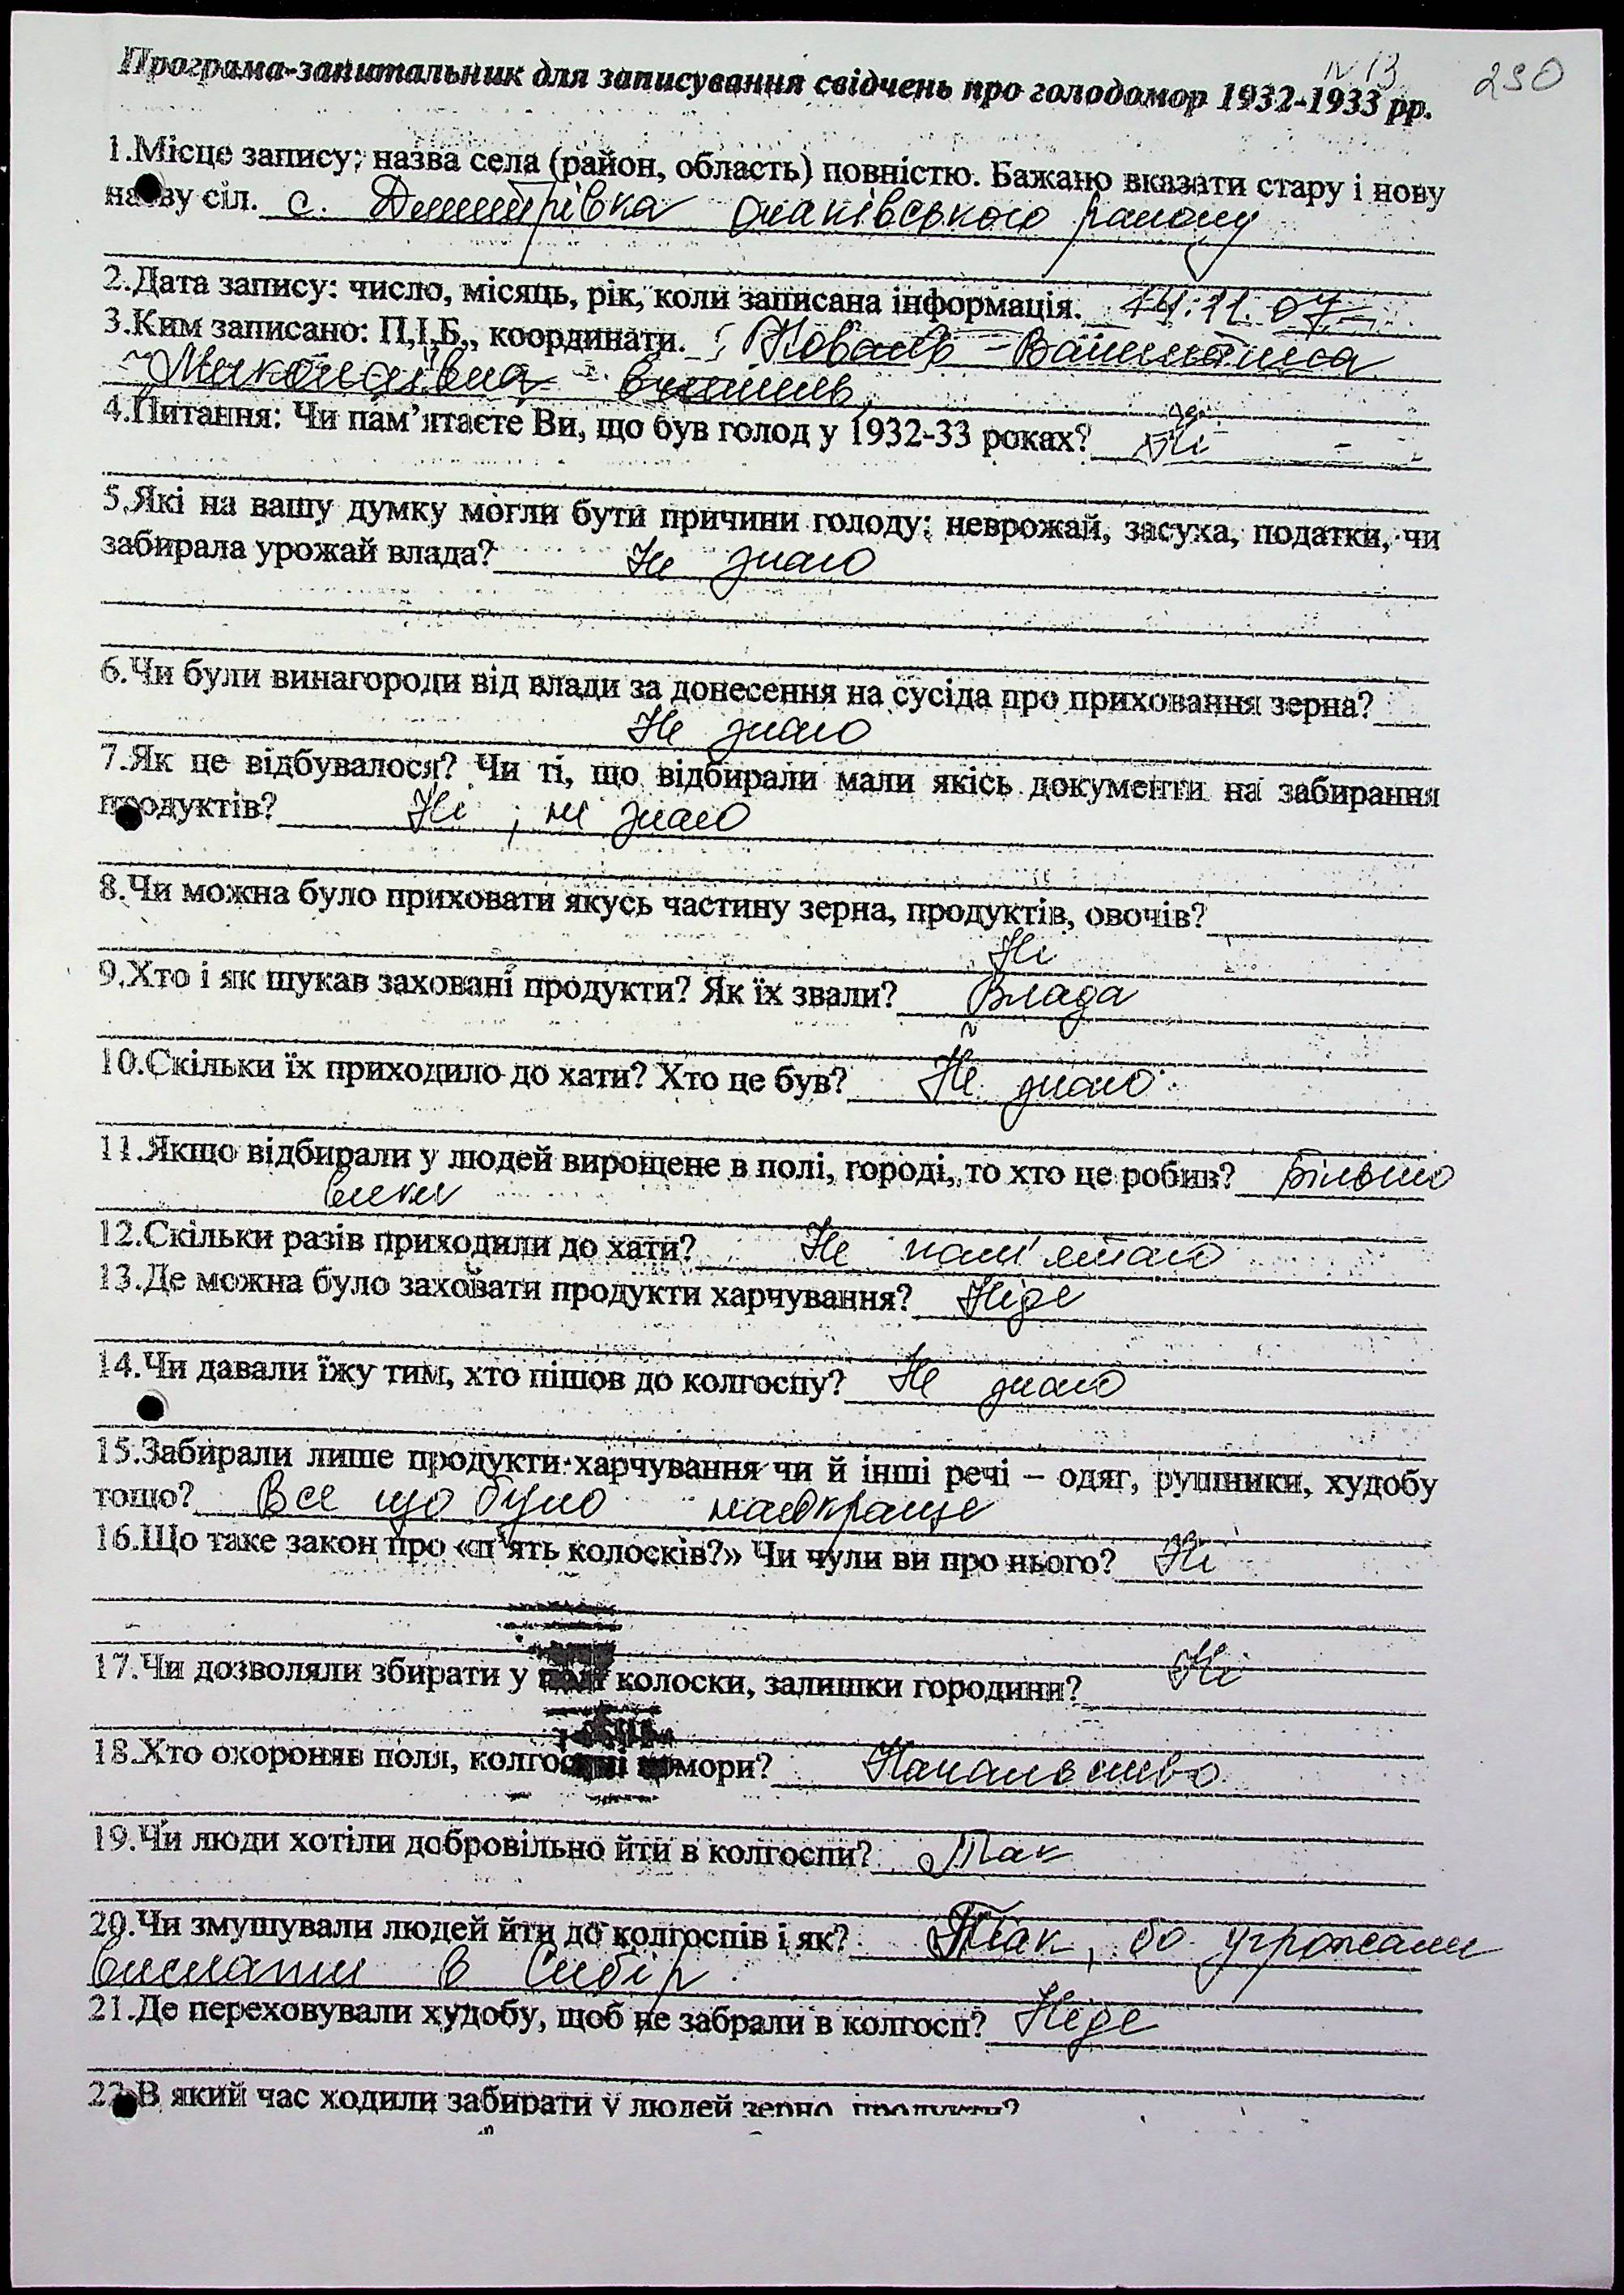 N 13 230
Програма-запитальник для записування свідчень про голодомор 1932-1933 рр.
1.Місце запису: назва села (район, область) повністю. Бажано вказати стару і нову
назву сіл. с. Дмитрівка Очаківського району
2.Дата запису: число, місяць, рік, коли записана інформація. 14.11.07
3.Ким записано: П,І,Б,, координати. Коваль Валентина
Миколаївна вчитель
4.Питання: Чи пам'ятаєте Ви, що був голод у 1932-33 роках? Ні
5.Які на вашу думку могли бути причини голоду: неврожай, засуха, податки, чи
забирала урожай влада? Не знаю
6.Чи були винагороди від влади за донесення на сусіда про приховання зерна?
Не знаю
7.Як це відбувалося? Чи ті, що відбирали мали якісь документи на забирання
продуктів? Ні, не знаю
8.Чи можна було приховати якусь частину зерна, продуктів, овочів?
Ні
9.Хто і як шукав заховані продукти? Як їх звали? Влада
10.Скільки їх приходило до хати? Хто це був? Не знаю
11.Якщо відбирали у людей вирощене в полі, городі, то хто це робив? Більшо
вики
12.Скільки разів приходили до хати? Не пам'ятаю
13.Де можна було заховати продукти харчування? Ніде
14.Чи давали їжу тим, хто пішов до колгоспу? Не знаю
15.Забирали лише продукти харчування чи й інші речі – одяг, рушники, худобу
тощо? Все що було найкраще
16.Що таке закон про «п'ять колосків?» Чи чули ви про нього? Ні
17.Чи дозволяли збирати у полі колоски, залишки городини? Ні
18.Хто охороняв поля, колгоспні комори? Начальство
19.Чи люди хотіли добровільно йти в колгоспи? Так
20.Чи змушували людей йти до колгоспів і як? Так, бо угрожали
вислати в Сибір
21.Де переховували худобу, щоб не забрали в колгосп? Ніде
22.В який час ходили забирати у людей зерно, продукти?